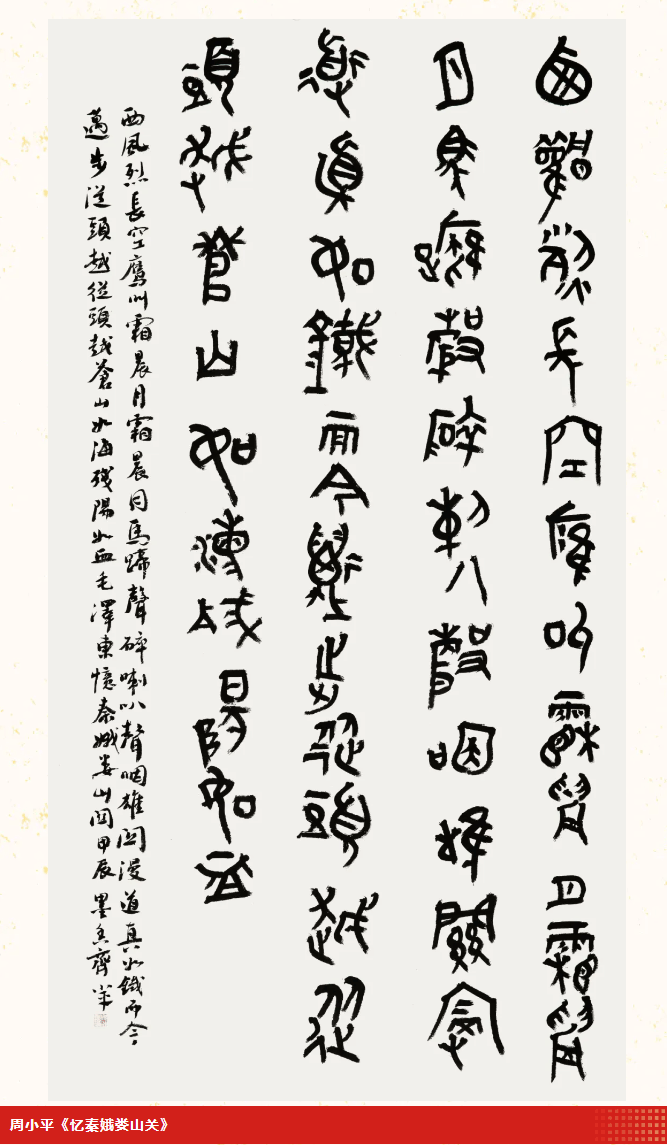 西風烈長空鷹叫霜晨月霜晨
月馬蹄聲碎喇叭聲咽雄關漫
道真如鐵而今邁步從頭越從
頭越蒼山如海殘陽如血
西風烈長空鷹叫霜晨月霜晨月馬蹄聲碎喇叭聲咽雄関漫道真如鐵而今
邁步從頭越從頭越蒼山如海殘陽如血毛澤東憶秦娥婁山関甲辰墨香齊小平
周小平《忆秦娥娄山关》